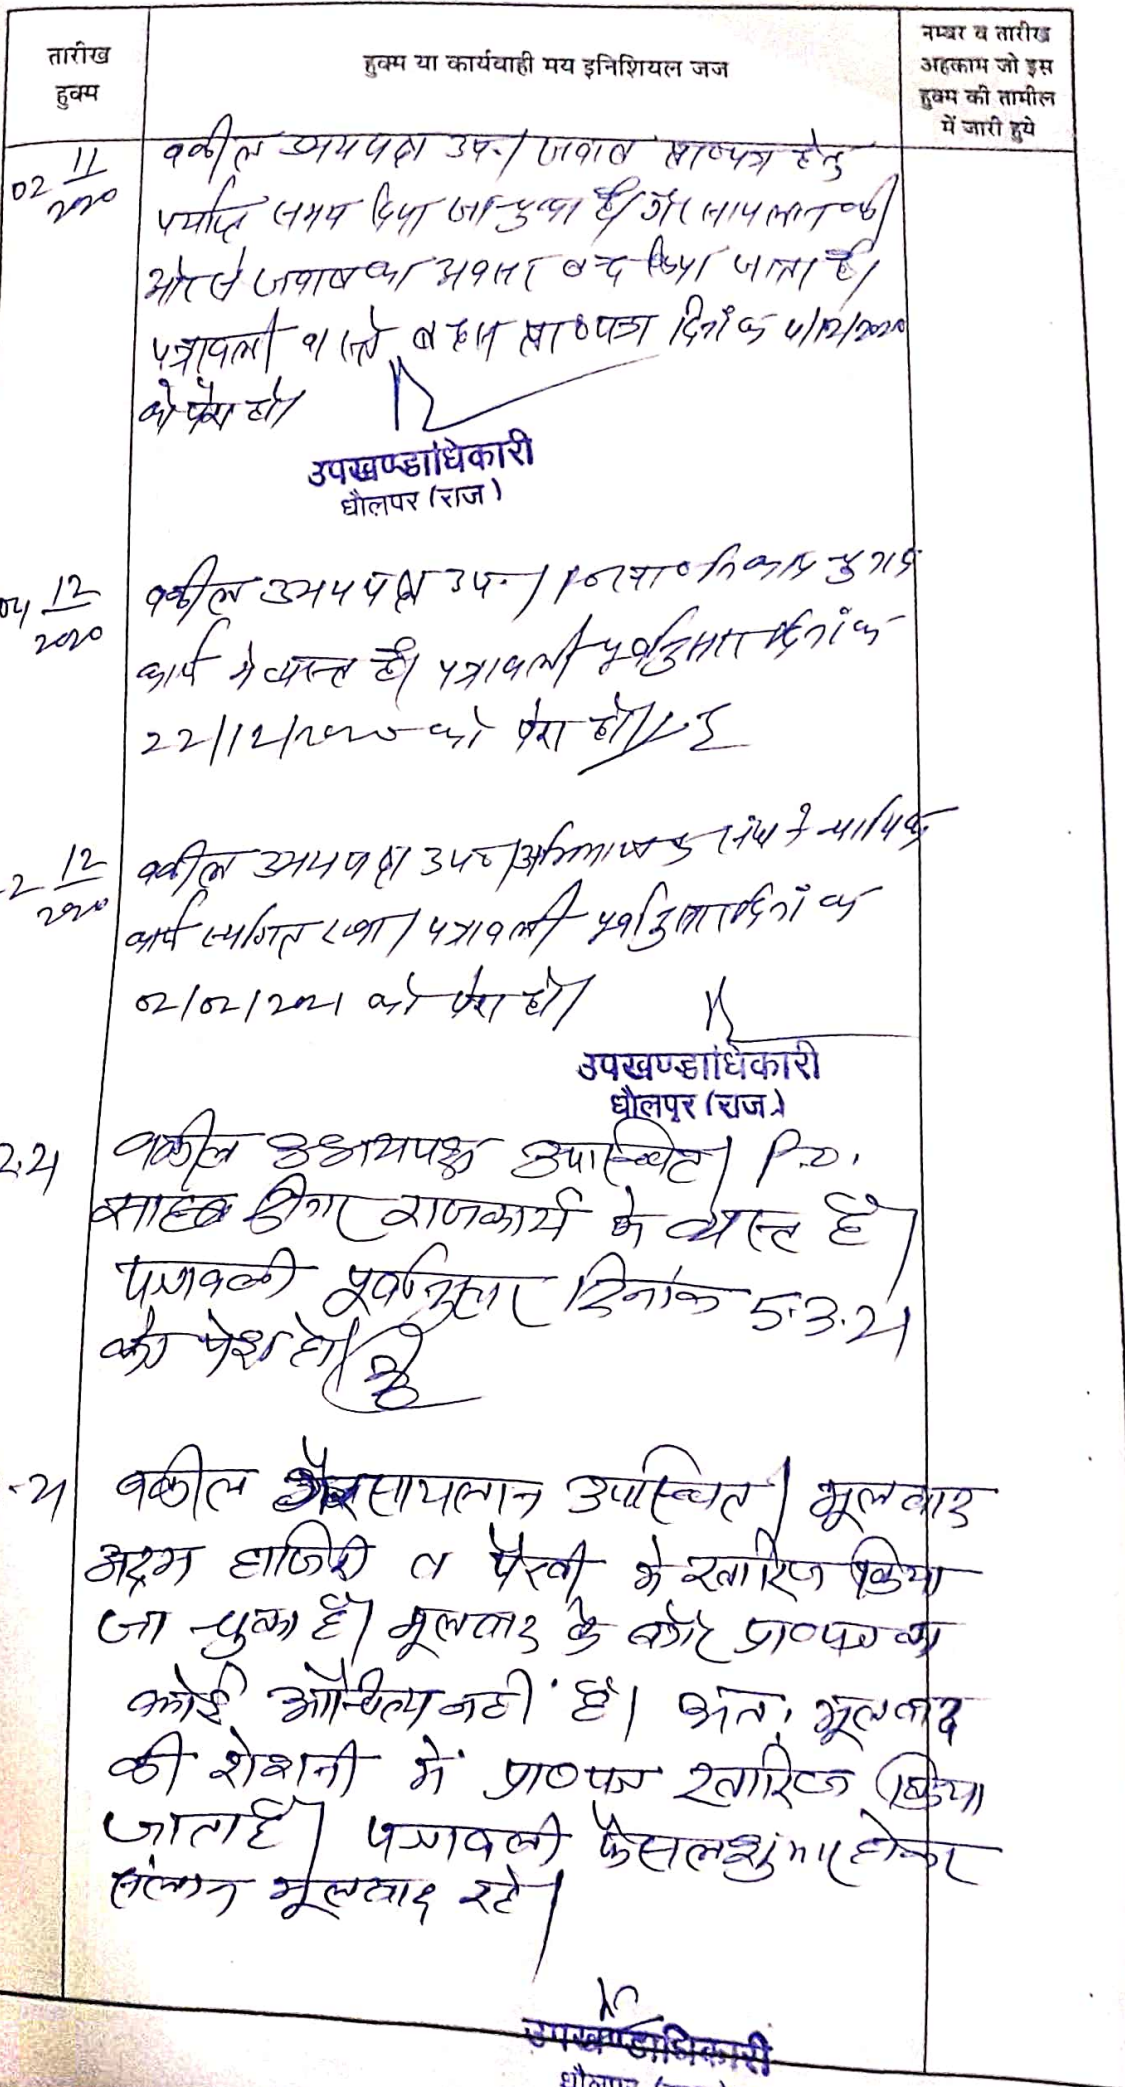 तारीख
हुक्म
हुक्म या कार्यवाही मय इनिशियल जज
नम्बर व तारीख
अहकाम जो इस
हुक्म की तामील
में जारी हुये
02 11/2020
वकील उभयपक्ष उप०। जवाब प्रा०पत्र हेतु
पर्याप्त समय दिया जा चुका है। गैर सायलान की
ओर से जवाब का अवसर बन्द किया जाता है।
पत्रावली वास्ते बहस प्रा०पत्र दिनांक 4/12/2020
को पेश हो।
उपखण्डाधिकारी
धौलपुर (राज)
04 12/2020
वकील उभयपक्ष उप०। चुनाव
कार्य में व्यस्त है। पत्रावली पूर्वानुसार दिनांक
22/12/2020 को पेश हो।
2 12/2020
वकील उभयपक्ष उप०। अभिभाषक संघ ने न्यायिक
कार्य स्थगित रखा। पत्रावली पूर्वानुसार दिनांक
02/02/2021 को पेश हो।
उपखण्डाधिकारी
धौलपुर (राज.)
2.21
वकील उभयपक्ष उपस्थित। P.O.
साहब राजकार्य में व्यस्त है।
पत्रावली पूर्वानुसार दिनांक 5.3.21
को पेश हो।
-21
वकील गैरसायलान उपस्थित। मूलवाद
अदम हाजिरी व पैरवी में खारिज किया
जा चुका है। मूलवाद के बगैर प्रा०पत्र का
कोई औचित्य नहीं है। अतः मूलवाद
की रोशनी में प्रा०पत्र खारिज किया
जाता है। पत्रावली फैसलशुमार होकर
संलग्न मूलवाद रहे।
उपखण्डाधिकारी